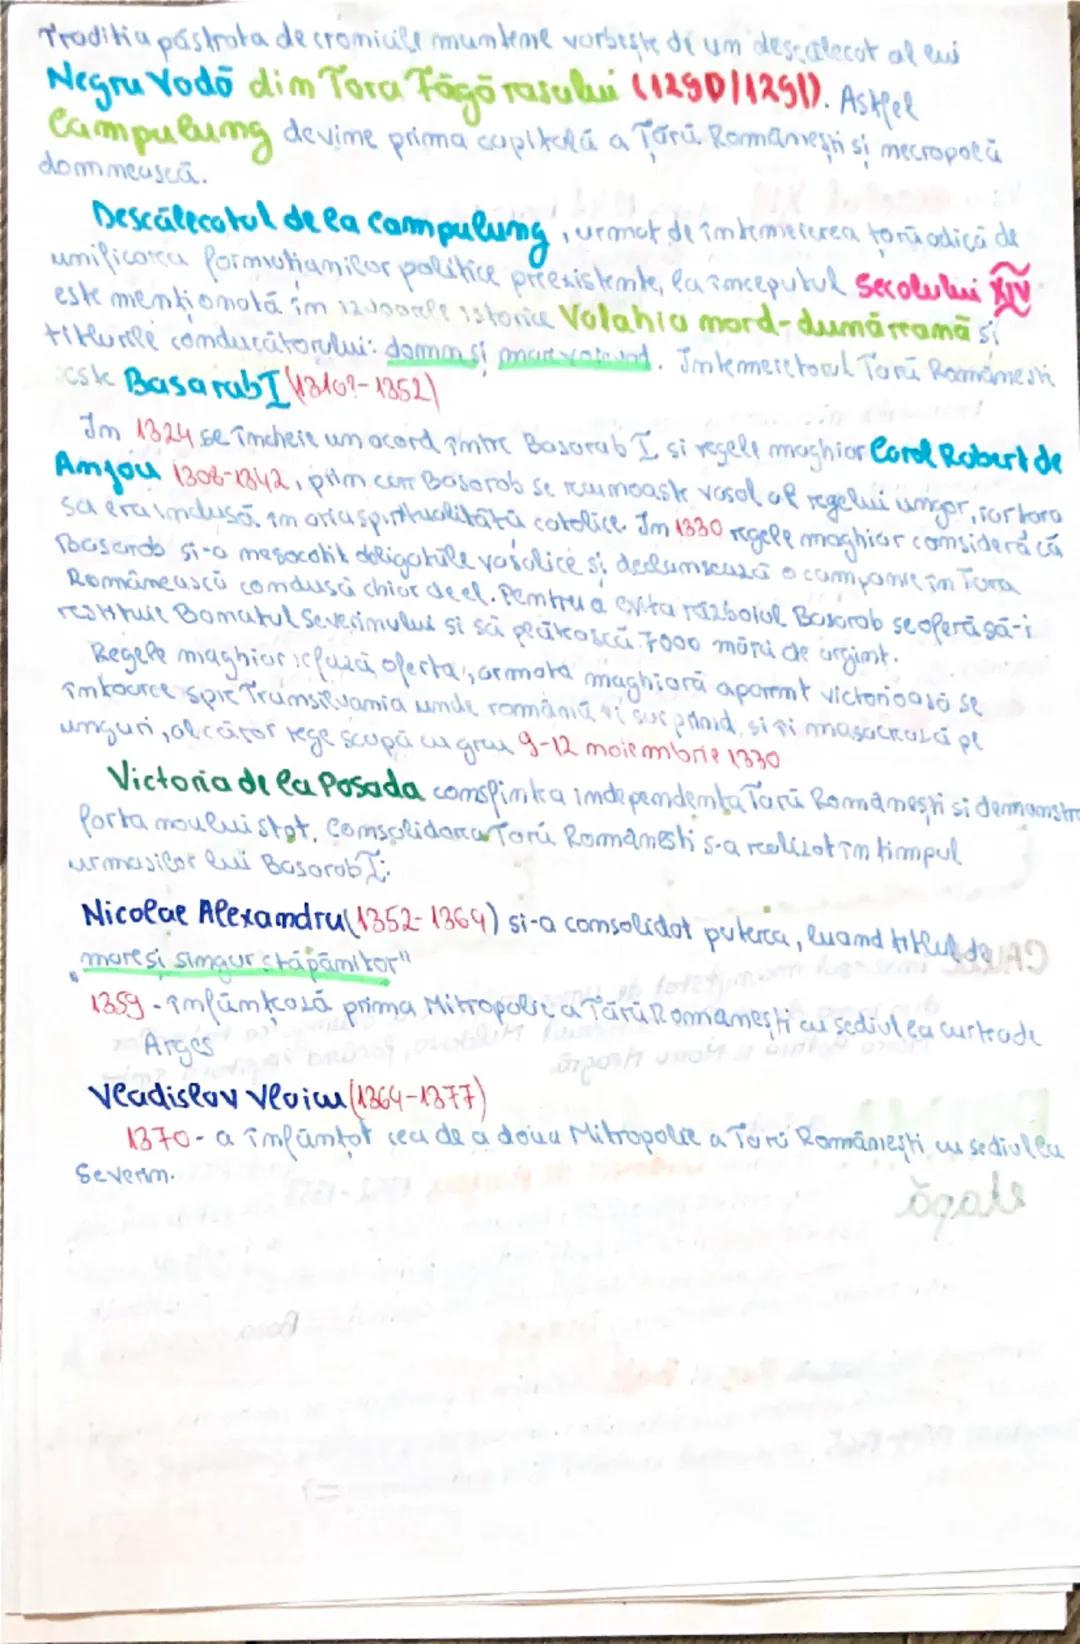 Traditia păstrata de cronicile muntene vorbeşte de un descălecat al lui
Negru Vodă din Tara Făgărasului (1290/1291). Astfel
Campulung devine prima capitală a Tării Româneşti si necropolă
domnească.
Descălecatul de la Campulung, urmat de întemeierea tării adică de
unificarea formatiunilor politice preexistente, la începutul Secolului XIV
este mentionată în izvoarele istorice Valahia nord-dunăreană si
titlurile conducătorului: domn si mare voievod. Întemeietorul Tării Românesti
este Basarab I (1310?-1352)
În 1324 se încheie un acord între Basarab I si regele maghiar Carol Robert de
Anjou 1308-1342, prin care Basarab se recunoaste vasal al regelui ungar, iar tara
sa era inclusă în aria spiritualitătii catolice. În 1330 regele maghiar consideră că
Basarab si-a nesocotit obligatiile vasalice si declansează o campanie in Tara
Românească condusă chiar de el. Pentru a evita războiul Basarab se oferă să-i
restituie Banatul Severinului si să plătească 7000 mărci de argint.
Regele maghiar refuză oferta, armata maghiară aparent victorioasă se
întoarce spre Transilvania unde românii ii surprind si ii masacrează pe
unguri, alicător rege scapă cu greu 9-12 noiembrie 1330
Victoria de la Posada consfinta independenta Tării Româneşti si demonstr
forta noului stat. Consolidarea Tării Românesti s-a realizat în timpul
urmasilor lui Basarab I:
Nicolae Alexandru (1352-1364) si-a consolidat puterea, luand titlul de
"mare si singur stăpânitor"
1359 - înfiintează prima Mitropolie a Tării Româneşti cu sediul la curtea de
Argeş
Vladislav Vlaicu (1364-1377)
1370 - a înfiintat cea de a doua Mitropolie a Tării Româneşti cu sediul la
Severin.